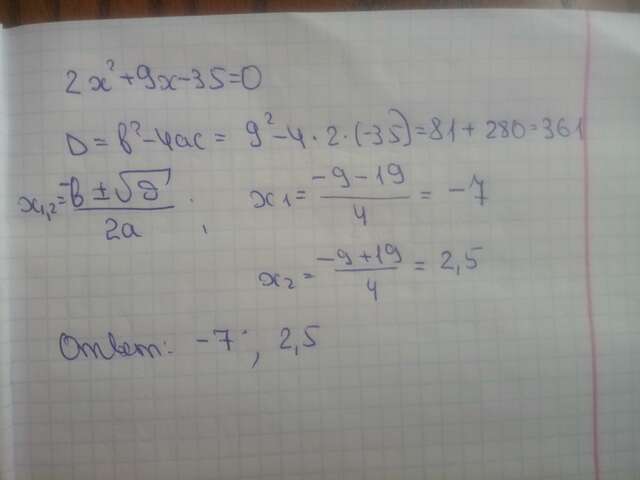 2x²+9x-35=0
D = b²-4ac = 9²-4·2·(-35)=81+280=361
x₁,₂ = (-b ± √D)/2a ; x₁ = (-9-19)/4 = -7
x₂ = (-9+19)/4 = 2,5
Ответ: -7 ; 2,5